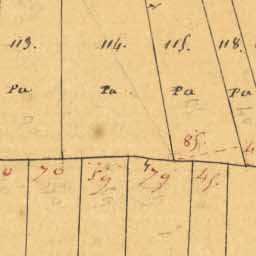 113. 114. 115. 118.
Pa Pa Pa Pa
85.
70 59 45.